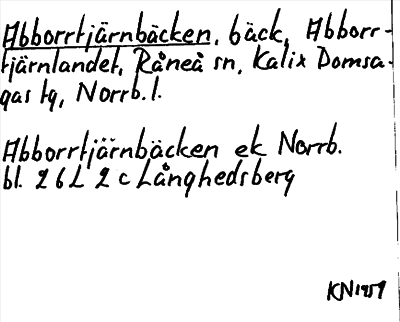 Abborrtjärnbäcken, bäck, Abborr-
tjärnlandet, Råneå sn, Kalix Domsa-
gas tg, Norrb. l.
Abborrtjärnbäcken ek Norrb.
bl. 26L 2c Långhedsberg
KN1959